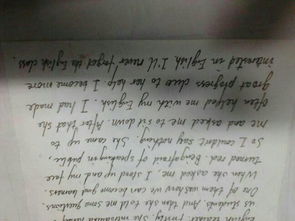 English teacher firstly. She introduced many
questions. And then she told us that some questions
One of them was how we can become good learners.
When she asked me. I stood up and my face
turned red. Being afraid of speaking in public,
So I couldn't say nothing. She came up to
me and asked me to sit down. After that she
often helped me with my English. I had made
great progress due to her help I become more
interested in English. I'll never forget the English class.